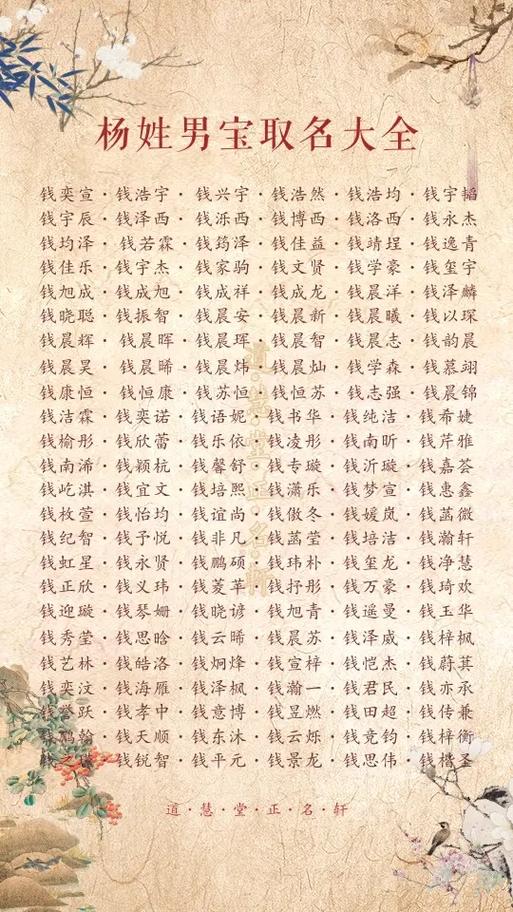 杨姓男宝取名大全
钱奕宣·钱浩宇·钱兴宇·钱浩然·钱浩均·钱宇韬
钱宇辰·钱泽西·钱泺西·钱博西·钱洛西·钱永杰
钱均泽·钱若霖·钱筠泽·钱佳益·钱靖埕·钱逸青
钱佳乐·钱宇杰·钱家驹·钱文贤·钱学豪·钱玺宇
钱旭成·钱成旭·钱成祥·钱成龙·钱晨洋·钱泽麟
钱晓聪·钱振智·钱晨安·钱晨新·钱晨曦·钱以琛
钱晨辉·钱晨晖·钱晨珲·钱晨智·钱晨志·钱韵晨
钱晨昊·钱晨晞·钱晨炜·钱晨灿·钱学森·钱慕翊
钱康恒·钱恒康·钱苏恒·钱恒苏·钱志强·钱晨锦
钱洁霖·钱奕诺·钱语妮·钱书华·钱纯洁·钱希婕
钱榆彤·钱欣蕾·钱乐依·钱凌彤·钱南昕·钱芹雅
钱南浠·钱颖杭·钱馨舒·钱专璇·钱沂璇·钱嘉荟
钱屹淇·钱宜文·钱培熙·钱潇乐·钱梦宣·钱惠鑫
钱枚萱·钱怡均·钱谊尚·钱傲冬·钱媛岚·钱菡微
钱纪智·钱予悦·钱非凡·钱菡莹·钱培洁·钱瀚轩
钱虹星·钱永贤·钱鹏硕·钱玮朴·钱玺龙·钱净慧
钱正欣·钱义玮·钱菱苹·钱抒彤·钱万豪·钱琦欢
钱迎璇·钱琴姗·钱晓谚·钱旭青·钱遥曼·钱玉华
钱秀莹·钱思晗·钱云晞·钱晨苏·钱泽威·钱梓枫
钱艺林·钱皓洛·钱炯烽·钱宣梓·钱恺杰·钱蔚萁
钱奕汶·钱海雁·钱泽枫·钱瀚一·钱君民·钱亦承
钱誉跃·钱孝中·钱意博·钱昱燃·钱田超·钱传兼
钱鹏翰·钱天顺·钱东沐·钱云烁·钱竞钧·钱梓衡
钱之·钱锐智·钱平元·钱景龙·钱思伟·钱楷圣
道·慧·堂·正·名·轩